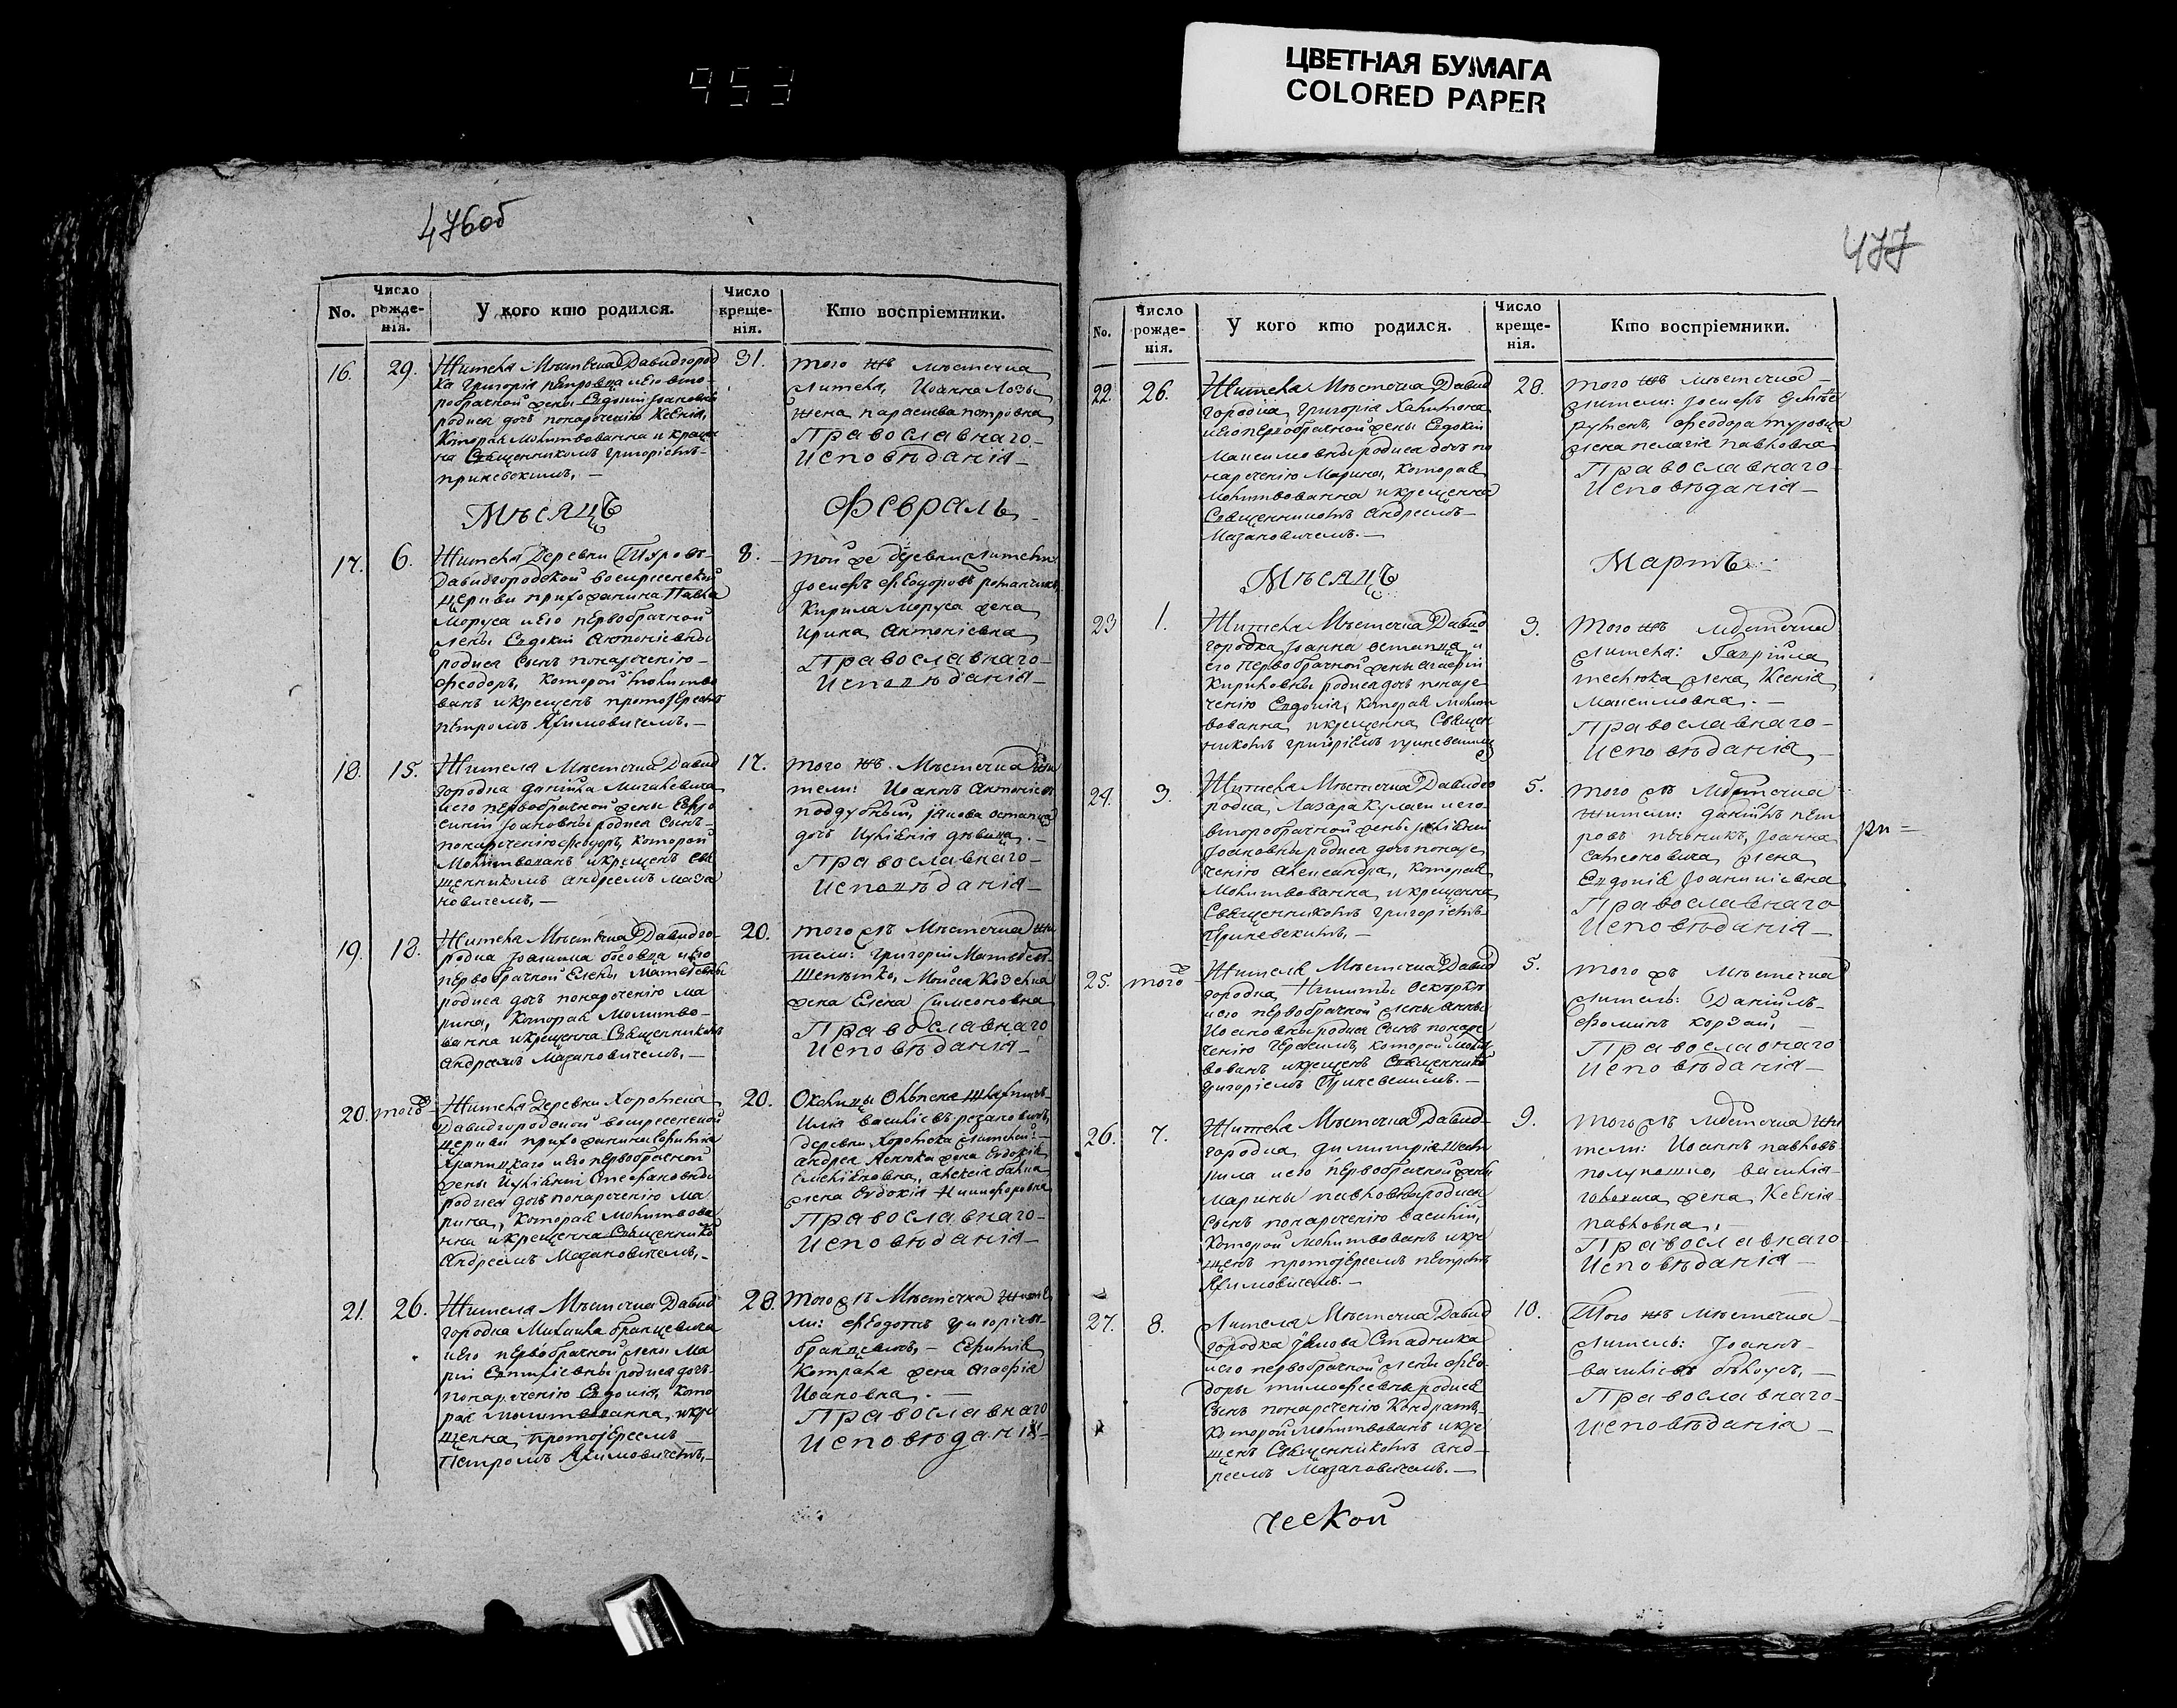 953
ЦВЕТНАЯ БУМАГА
COLORED PAPER
476об
No.
Число рожде-нія.
У кого кто родился.
Число креще-нія.
Кто воспріемники.
16.
29.
Жителя Мѣстечка Давидгород
ка Григорія Петровца и его вто-
робрачной жены Евдокіи Іоановны
родися дочь понареченію Ксенія,
Которая Молитвованна и креще
на Священникомъ Григоріемъ-
Приневскимъ, —
31.
того жъ мѣстечка
жителя, Иоанна Лозы
жена Парасиева Петровна
Православнаго-
Исповѣданія-
Мѣсяцъ
Февраль
17.
6.
Жителя Деревни Туровъ-
Давидгородской воскресенской
Церкви прихожанина Павла
Моруса и его первобрачной
жены Евдокіи Антоніевны
родися Сынъ понареченію-
Феодоръ, Которой молитво
ванъ и крещенъ протоіереемъ
Петромъ Якимовичемъ, —
8.
той же деревни жители
Іосифъ Феодоровъ
Кирила Моруса жена
Ирина Антоніевна
Православнаго-
Исповѣданія-
18.
15.
Жителя Мѣстечка Давид
городка Даніила
и его первобрачной жены Евфро
синіи Іоановны родися Сынъ-
понареченію Феодоръ, Которой
Молитвованъ и крещенъ Свя
щенникомъ Андреемъ Маза
новичемъ, —
17.
того жъ Мѣстечка жи
тели: Иоаннъ Антоніевъ
Поддубный, Якова Остапца
дочь Иуліанія дѣвица. —
Православнаго-
Исповѣданія-
19.
18.
Жителя Мѣстечка Давидго-
родка Іоакима и его
первобрачной Елены Матвѣевны
родися дочь понареченію Ма
рина, Которая Молитво-
ванна и крещенна Священникомъ
Андреемъ Мазановичемъ, —
20.
того жъ Мѣстечка жи
тели: Григорій Матвѣевъ-
Шепѣтько, Моисея Козелка
жена Елена Симеоновна
Православнаго
Исповѣданія-
20.
тогожъ
Жителя Деревни Хоромска
Давидгородской воскресенской
Церкви прихожанина
и его первобрачной
жены Иуліаніи Стефановны
родися дочь понареченію Ма
рина, Которая Молитвова
нна и крещенна Священнико
Андреемъ Мазановичемъ, —
20.
Околицы Ольпеня Шляхтичъ-
Илія Василіевъ
деревни Хоромска жителей:
Андрея жена Евдокія
жена Евдокія Никифоровна
Православнаго-
Исповѣданія-
21.
26.
Жителя Мѣстечка Давид
городка Михаила Бранцевича
и его первобрачной жены Ма
ріи родися дочь-
понареченію Евдокія, Кото
рая Молитвованна, и кре
щенна Протоіереемъ
Петромъ Якимовичемъ, —
28.
Того жъ Мѣстечка жите
ли: Феодотъ Григоріевъ-
Бранцевичъ,
жена Агафія
Ивановна. —
Православнаго
Исповѣданія-
477
No.
Число рожде-нія.
У кого кто родился.
Число креще-нія.
Кто воспріемники.
22.
26.
Жителя Мѣстечка Давид
городка, Григорія Харитона
и его первобрачной жены Евдокіи
Максимовны родися дочь по
нареченію Марина, Которая
Молитвованна и крещенна
Священникомъ Андреемъ-
Мазановичемъ. —
28.
того жъ мѣстечка-
жители: Іосифъ
Феодора Туровца
жена Пелагія Павловна
Православнаго-
Исповѣданія-
Мѣсяцъ
Мартъ
23
1.
Жителя Мѣстечка Давид
городка Іоанна Остапца и
его Первобрачной жены Агафіи
Кириловны родися дочь понаре
ченію Евдокія, Которая Молит
вованна и крещенна Священ
никомъ Григоріемъ Приневским
3.
Того жъ мѣстечка
жителя: Гавріила
жена, Ксенія
Максимовна. —
Православнаго-
Исповѣданія-
24.
3.
Жителя Мѣстечка Давидго
родка, Лазаря и его
второбрачной жены Іуліаніи
Іоановны родися дочь понаре
ченію Александра, Которая
Молитвованна и крещенна
Священникомъ Григоріемъ
Приневскимъ, —
5.
того жъ Мѣстечка
жители: Даніилъ Пет
ровъ Іоанна
Самсоновича жена
Евдокія
Православнаго
Исповѣданія-
25.
тогожъ
Жителя Мѣстечка Давид
городка, Никиты
и его первобрачной жены Анны
Иоановны родися Сынъ понаре
ченію Герасимъ, Которой Молит
вованъ и крещенъ Священнико
Григоріемъ Приневскимъ. —
5.
того жъ Мѣстечка
житель: Даніилъ-
Фоминъ Корзай, —
Православнаго
Исповѣданія-
26.
7.
Жителя Мѣстечка Давид-
городка, Димитрія
и его первобрачной жены
Марины Павловны родися
Сынъ понареченію Василій,
Которой Молитвованъ и кре
щенъ протоіереемъ Петромъ
Якимовичемъ. —
9.
того жъ Мѣстечка жи
тели: Иоаннъ Павловъ
Полукошко, Василія
жена, Ксенія
Павловна, —
Православнаго
Исповѣданія-
27.
8.
Жителя Мѣстечка Давид
городка Якова Стадника
и его первобрачной жены Фео-
доры Тимофеевны родися
Сынъ понареченію Кондратъ,
Которой Молитвованъ и кре
щенъ Священникомъ Анд-
реемъ Мазановичемъ. —
10.
Того жъ мѣстечка
житель: Іоаннъ-
Василіевъ Бѣлоусъ, —
Православнаго-
Исповѣданія-
ческой